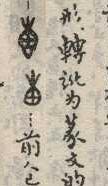 形轉訛为篆文的
…前人已